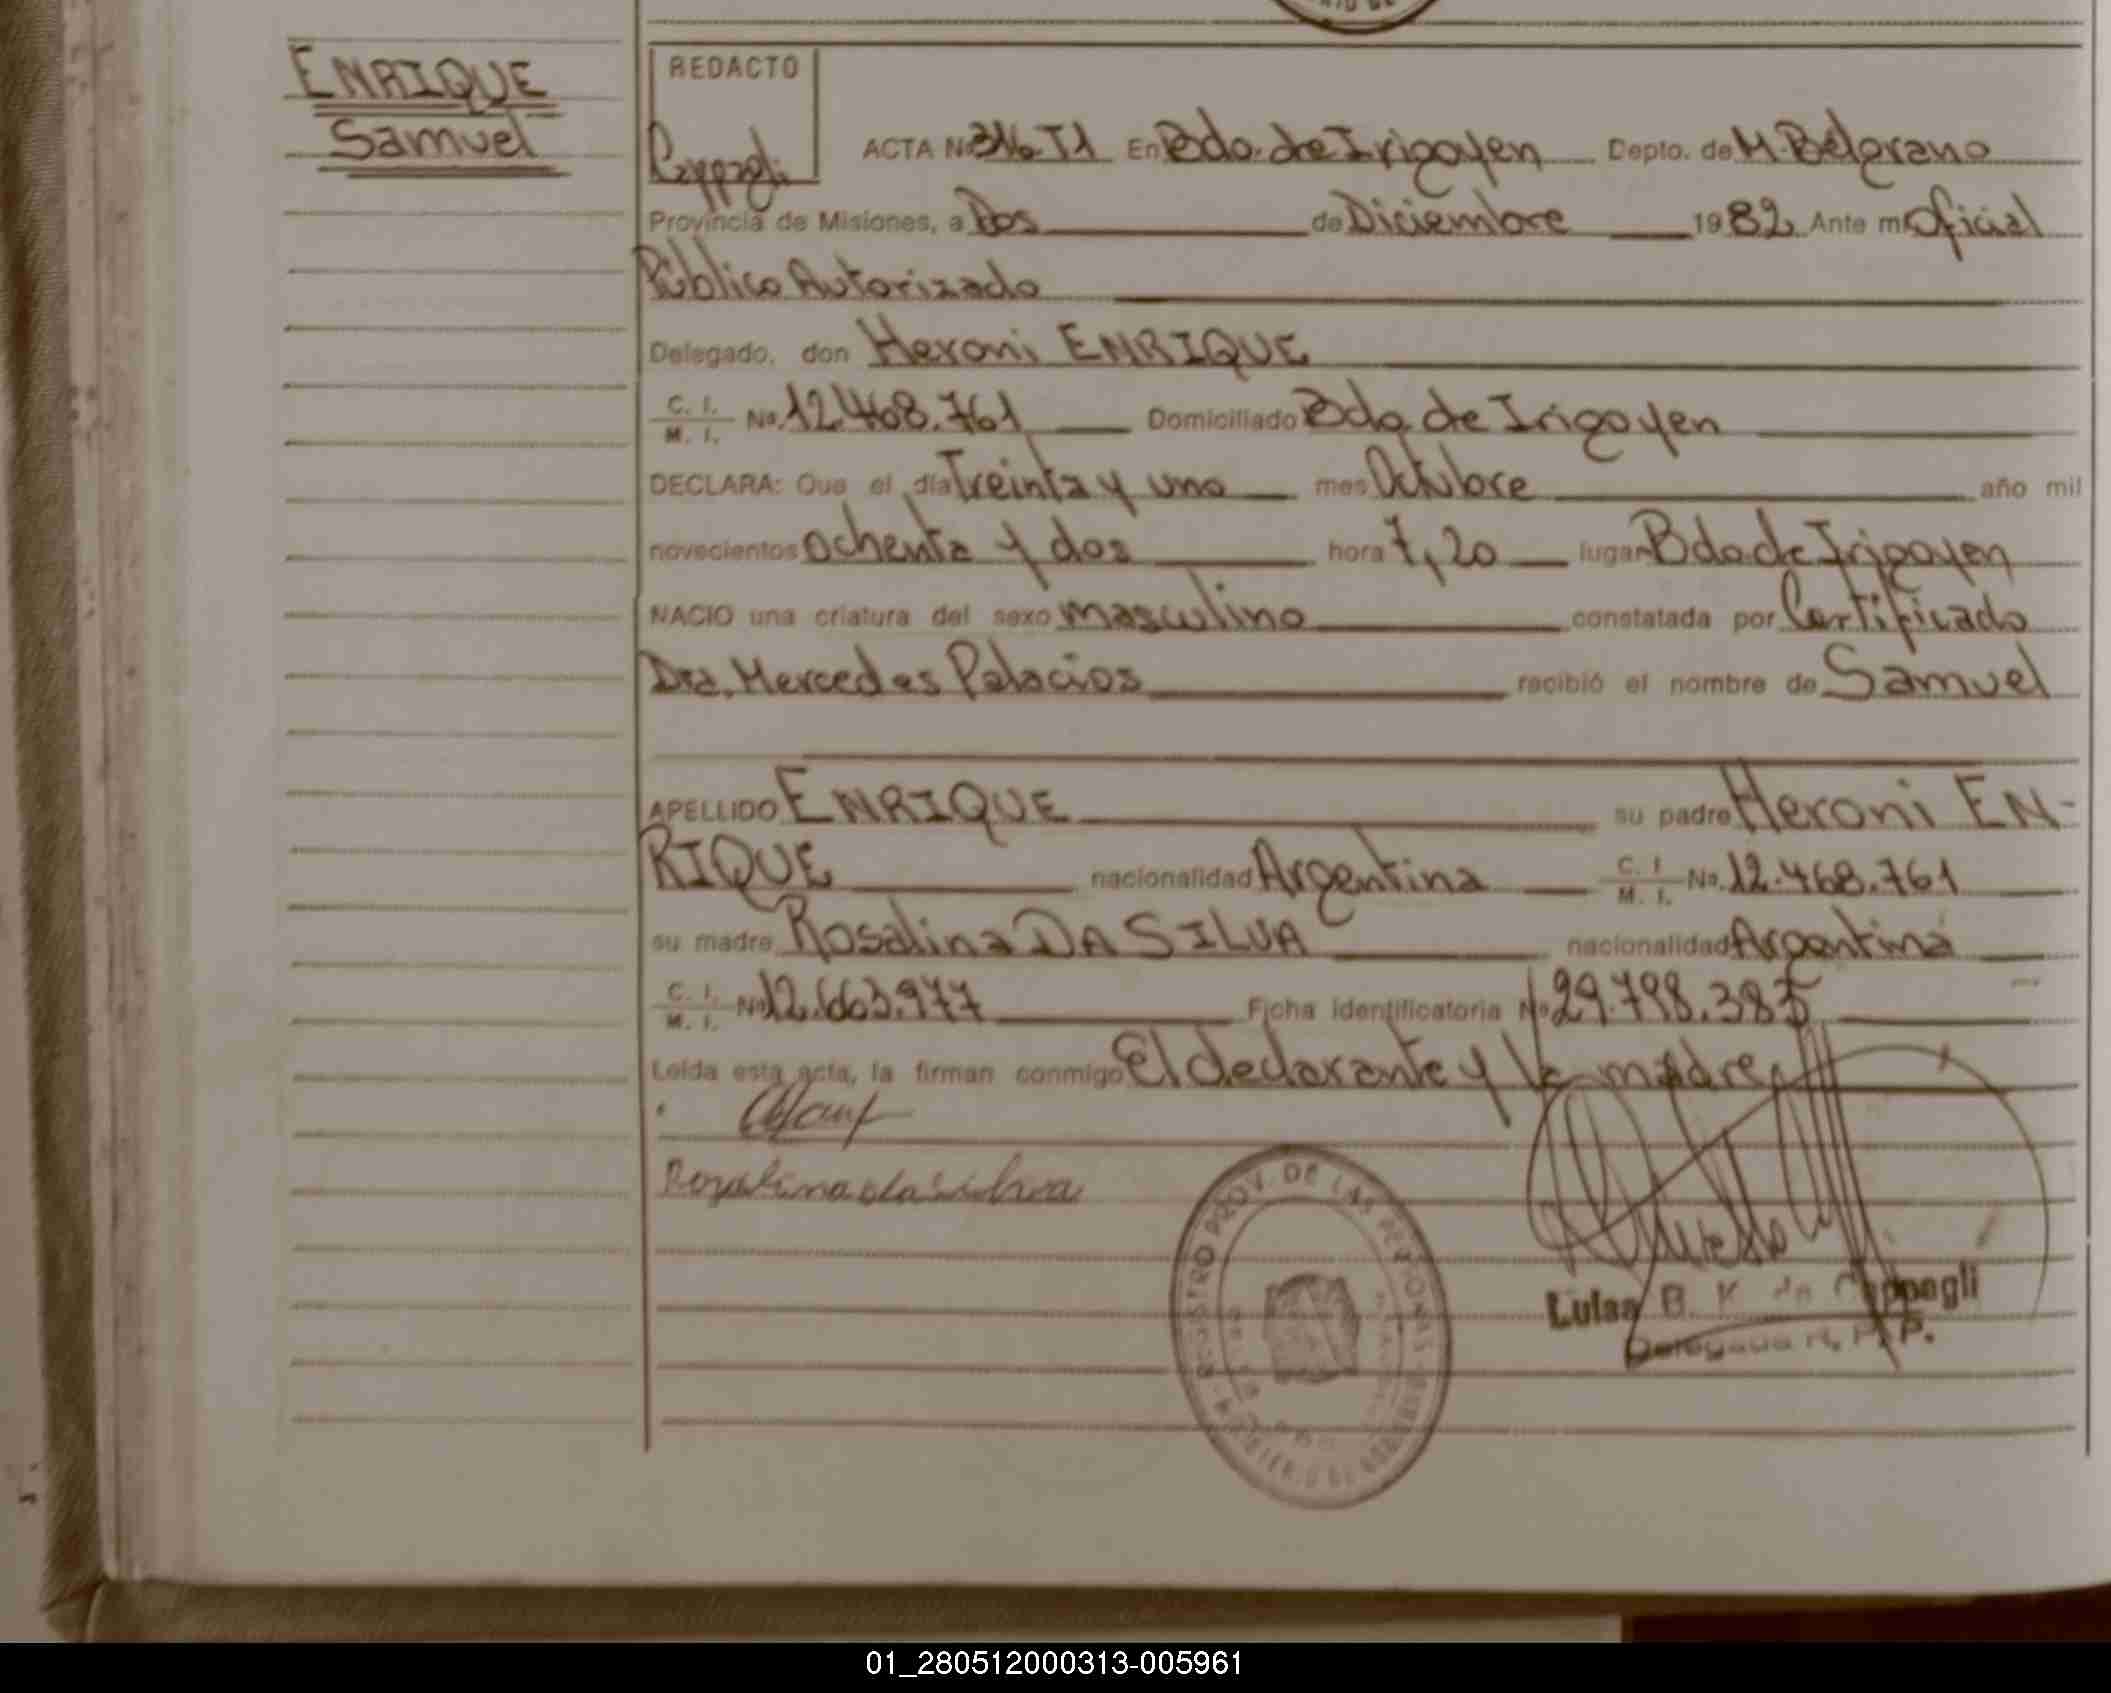 ENRIQUE
Samuel
REDACTO
Cappagli
ACTA No 316 T1 En Bdo. de Irigoyen Depto. de M. Belgrano
Provincia de Misiones, a Dos de Diciembre 1982 Ante mi Oficial
Público Autorizado
Delegado, don Heroni ENRIQUE
C. I. M. I. No. 12.468.761 Domiciliado Bdo. de Irigoyen
DECLARA: Que el día Treinta y uno mes Octubre año mil
novecientos ochenta y dos hora 7,20 lugar Bdo. de Irigoyen
NACIO una criatura del sexo masculino constatada por Certificado
Dra. Mercedes Palacios recibió el nombre de Samuel
APELLIDO ENRIQUE su padre Heroni EN-
RIQUE nacionalidad Argentina C. I. M. I. No. 12.468.761
su madre Rosalina DA SILVA nacionalidad Argentina
C. I. M. I. No 12.663.977 Ficha identificatoria No 29.798.385
Leída esta acta, la firman conmigo El declarante y la madre
Rozalina da Silva
REGISTRO PROV. DE LAS PERSONAS
MINISTERIO DE GOBIERNO
Luisa B. K. de Cappagli
Delegada R. P. P.
01_280512000313-005961